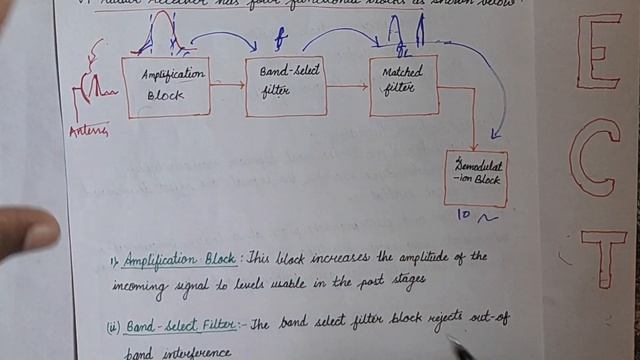 radar receiver has four functional blocks as shown below
Amplification
Block
Band-Select
filter
Matched
filter
Antenna
Demodulat
-ion Block
10
i) Amplification Block : This block increases the amplitude of the
incoming signal to levels usable in the post stages
(ii) Band-Select Filter:- The band select filter block rejects out-of
band interference
E
C
T